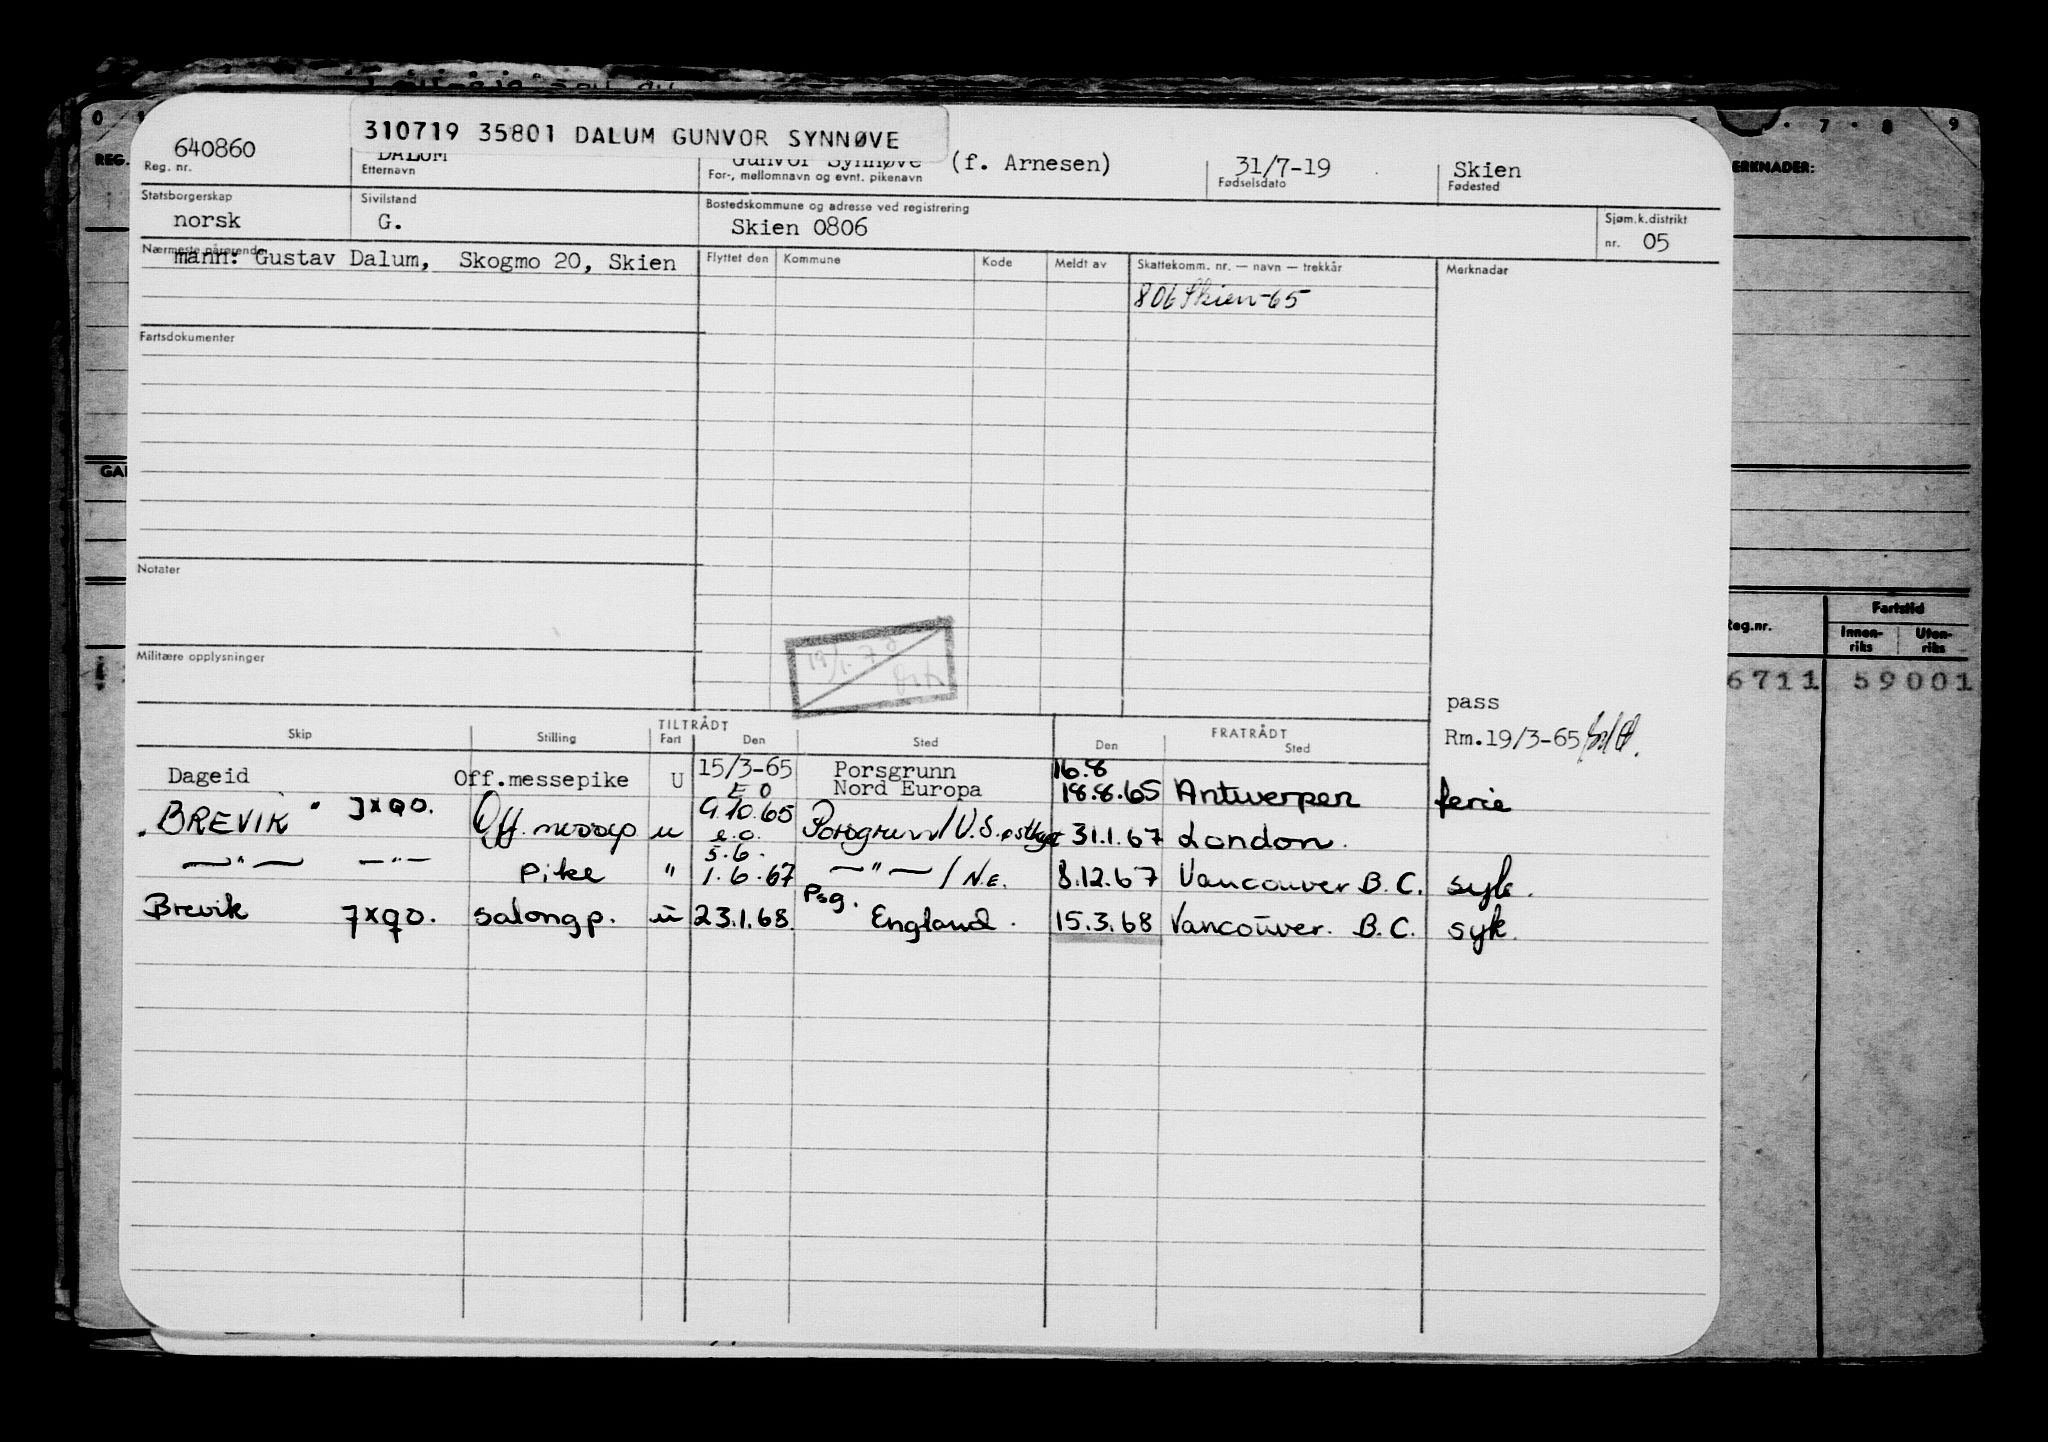 310719 35801 DALUM GUNVOR SYNNØVE
640860 DALUM Gunvor Synnøve (f. Arnesen) 31/7-19 Skien
Reg. nr. Etternavn For-, mellomnavn og evnt. pikenavn Fødselsdato Fødested
Statsborgerskap Sivilstand Bostedskommune og adresse ved registrering Sjøm.k.distrikt
norsk G. Skien 0806 nr. 05
Nærmeste pårørende
mann: Gustav Dalum, Skogmo 20, Skien
Flyttet den Kommune Kode Meldt av Skattekomm. nr. — navn — trekkår Merknader
806 Skien-65
Fartsdokumenter
Notater
Militære opplysninger
pass
Rm.19/3-65
TILTRÅDT FRATRÅDT
Skip Stilling Fart Den Sted Den Sted
Dageid Off.messepike U 15/3-65 Porsgrunn 16.8
E O Nord Europa 18.8.65 Antwerpen ferie
"BREVIK" JXQO. Off. messep u 9.10.65 Porsgrunn/U.S. 31.1.67 London.
e.o.
5.6.
—"— —"— Pike " 1.6.67 —"—/N.E. 8.12.67 Vancouver B.C. syk.
Psg.
Brevik JXQO. salongp. u 23.1.68. England. 15.3.68 Vancouver. B.C. syk.
REG.
ERKNADER:
7 8 9
GA
Reg.nr. Fartstid
Innen-riks Uten-riks
6711 59001